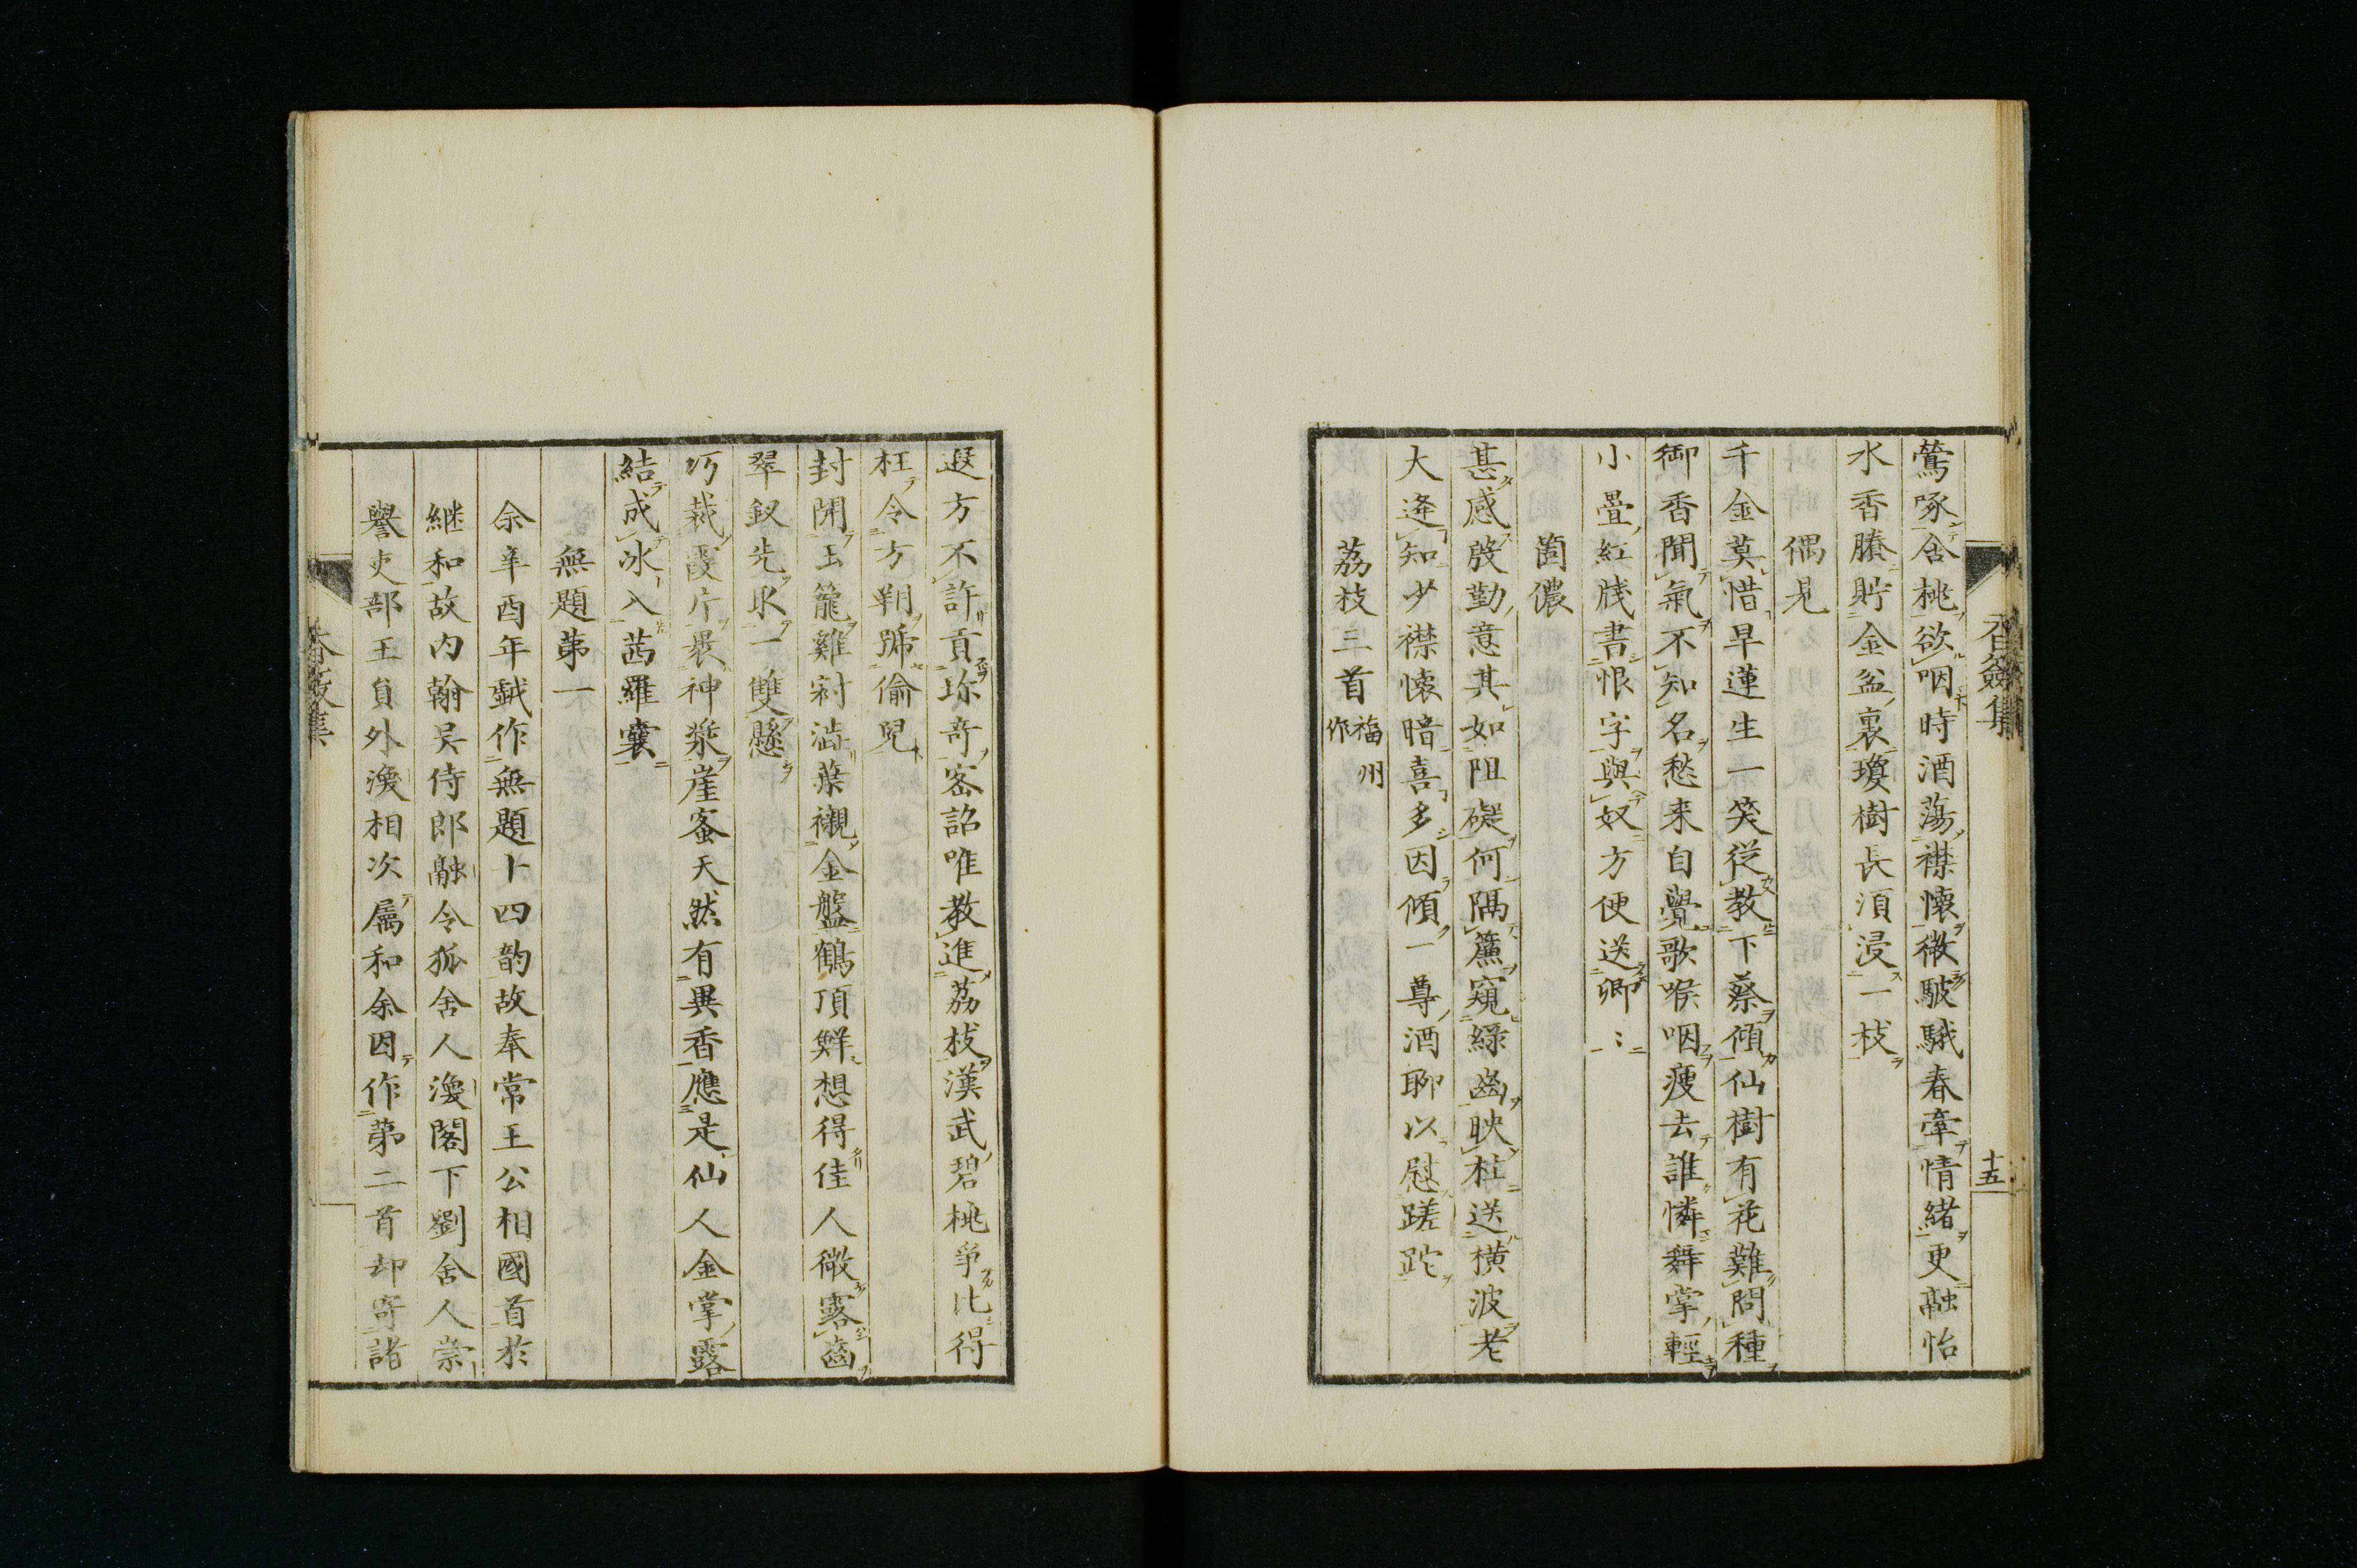 香奩集
十五
鶯啄含桃欲咽時酒蕩襟懷微駊騀春牽情緒更融怡
水香賸貯金盆裏瓊樹長須浸一枝
偶見
千金莫惜旱蓮生一笑從教下蔡傾仙樹有花難問種
御香聞氣不知名愁来自覺歌喉咽瘦去誰憐舞掌輕
小疊紅牋書恨字與奴方便送卿〻
箇儂
甚感殷勤意其如阻礙何隔簾窺綠齒映柱送橫波老
大逢知少襟懷暗喜多因傾一尊酒聊以慰蹉跎
荔枝三首福州作
遐方不許貢珍奇密詔唯教進荔枝漢武碧桃爭比得
枉令方朔號偷兒
封開玉籠雞冠澁葉襯金盤鶴頂鮮想得佳人微露齒
翠釵先取一雙懸
巧裁霞片褁神漿崖蜜天然有異香應是仙人金掌露
結成冰入茜羅囊
無題第一
余辛酉年戲作無題十四韵故奉常王公相國首於
継和故内翰吴侍郎融令狐舍人渙閣下劉舍人崇
譽吏部王員外渙相次属和余因作第二首却寄諸
香奩集